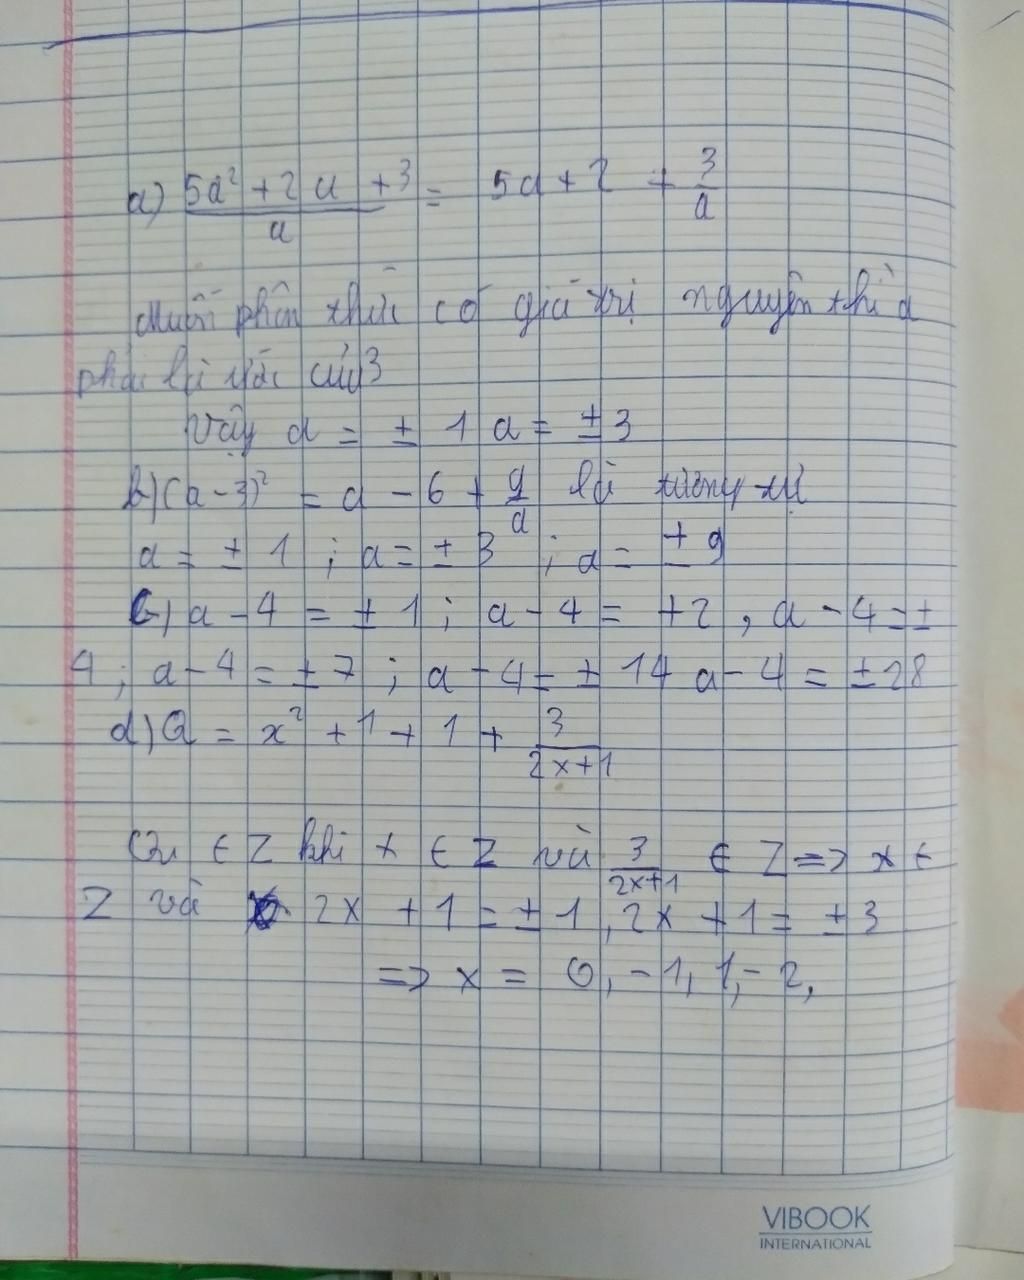 a) (5a² + 2a + 3)/a = 5a + 2 + 3/a
Muốn phân thức có giá trị nguyên thì a
phải là ước của 3
Vậy a = ± 1 a = ± 3
b) (a - 3)² = a - 6 + 9/a là tương tự
a = ± 1 ; a = ± 3 ; a = ± 9
c) a - 4 = ± 1 ; a - 4 = +2 , a - 4 = ±
4 ; a - 4 = ± 7 ; a - 4 = ± 14 a - 4 = ± 28
d) Q = x² + 1 + 1 + 3/(2x+1)
∈ Z khi x ∈ Z và 3/(2x+1) ∈ Z => x ∈
Z và 2x + 1 = ± 1 , 2x + 1 = ± 3
=> x = 0, -1, 1, -2,
VIBOOK
INTERNATIONAL